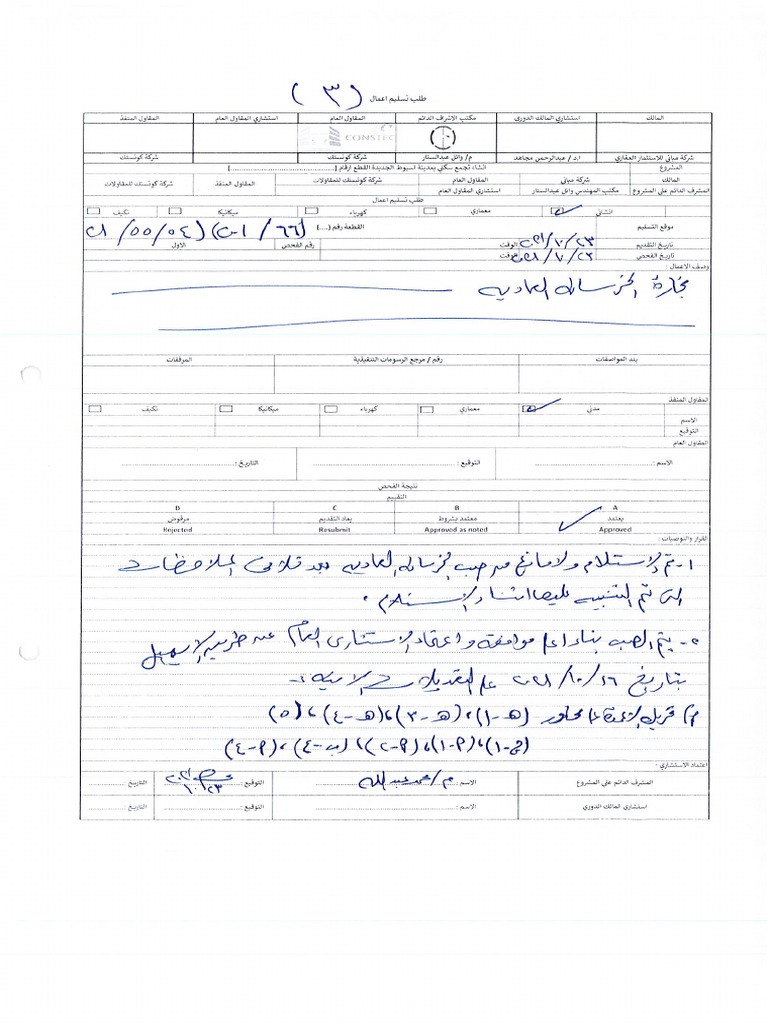 طلب تسليم اعمال (٣)
المالك استشاري المالك الدورى مكتب الإشراف الدائم المقاول العام استشاري المقاول العام المقاول المنفذ
CONSTEC
شركة مباني للاستثمار العقاري ا.د / عبدالرحمن مجاهد م/ وائل عبدالستار شركة كونستك شركة كونستك
المشروع انشاء تجمع سكني بمدينة اسيوط الجديدة القطع ارقام [....................]
المالك شركة مباني المقاول العام شركة كونستك للمقاولات المقاول المنفذ شركة كونستك للمقاولات
المشرف الدائم على المشروع مكتب المهندس وائل عبدالستار استشاري المقاول العام
طلب تسليم اعمال
انشائي معماري كهرباء ميكانيكا تكيف
موقع التسليم القطعة رقم (....)
تاريخ التقديم ٢٠٢١/١٠/٢٣ الوقت رقم الفحص الاول
تاريخ الفحص الوقت
وصف الاعمال :
نجارة الخرسانه العاديه
بند المواصفات رقم / مرجع الرسومات التنفيذية المرفقات
المقاول المنفذ
مدني معماري كهرباء ميكانيكا تكيف
الاسم
التوقيع
المقاول العام
الاسم : التوقيع : التاريخ :
نتيجة الفحص
التقييم
A B C D
يعتمد معتمد بشروط يعاد التقديم مرفوض
Approved Approved as noted Resubmit Rejected
القرار والتوصيات :
١- تم الاستلام ولا مانع من صب الخرسانه العاديه بعد تلافى الملاحظات
التى تم التنبيه عليها اثناء الاستلام .
٢- يتم الصب بناءا على موافقة واعتماد الاستشارى العام عن طريق الايميل
بتاريخ ٢٠٢١/١٠/١٦ على التعديلات الاتية :-
(هـ-١)، (هـ-٣)، (هـ-٤)، (٥)
(ج-١)، (٢-١)، (٢-٢)، (ب-٤)، (٢-٤)
اعتماد الاستشاري :
المشرف الدائم على المشروع الاسم : م/محمد عبدالله التوقيع : ١٠/٢٣ التاريخ :
استشاري المالك الدوري الاسم : التوقيع : التاريخ :